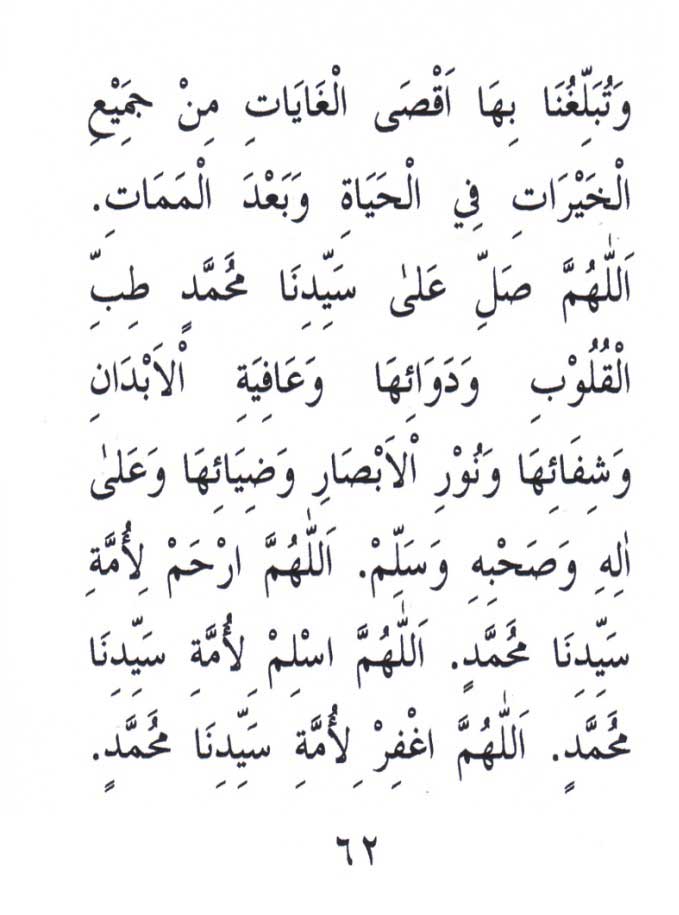 وَتُبَلِّغُنَا بِهَا اَقْصَى الْغَايَاتِ مِنْ جَمِيْعِ
الْخَيْرَاتِ فِي الْحَيَاةِ وَبَعْدَ الْمَمَاتِ.
اَللّٰهُمَّ صَلِّ عَلىٰ سَيِّدِنَا مُحَمَّدٍ طِبِّ
الْقُلُوْبِ وَدَوَائِهَا وَعَافِيَةِ اْلاَبْدَانِ
وَشِفَائِهَا وَنُوْرِ اْلاَبْصَارِ وَضِيَائِهَا وَعَلىٰ
اٰلِهِ وَصَحْبِهِ وَسَلِّمْ. اَللّٰهُمَّ ارْحَمْ لِأُمَّةِ
سَيِّدِنَا مُحَمَّدٍ. اَللّٰهُمَّ اسْلِمْ لِأُمَّةِ سَيِّدِنَا
مُحَمَّدٍ. اَللّٰهُمَّ اغْفِرْ لِأُمَّةِ سَيِّدِنَا مُحَمَّدٍ.
٦٢